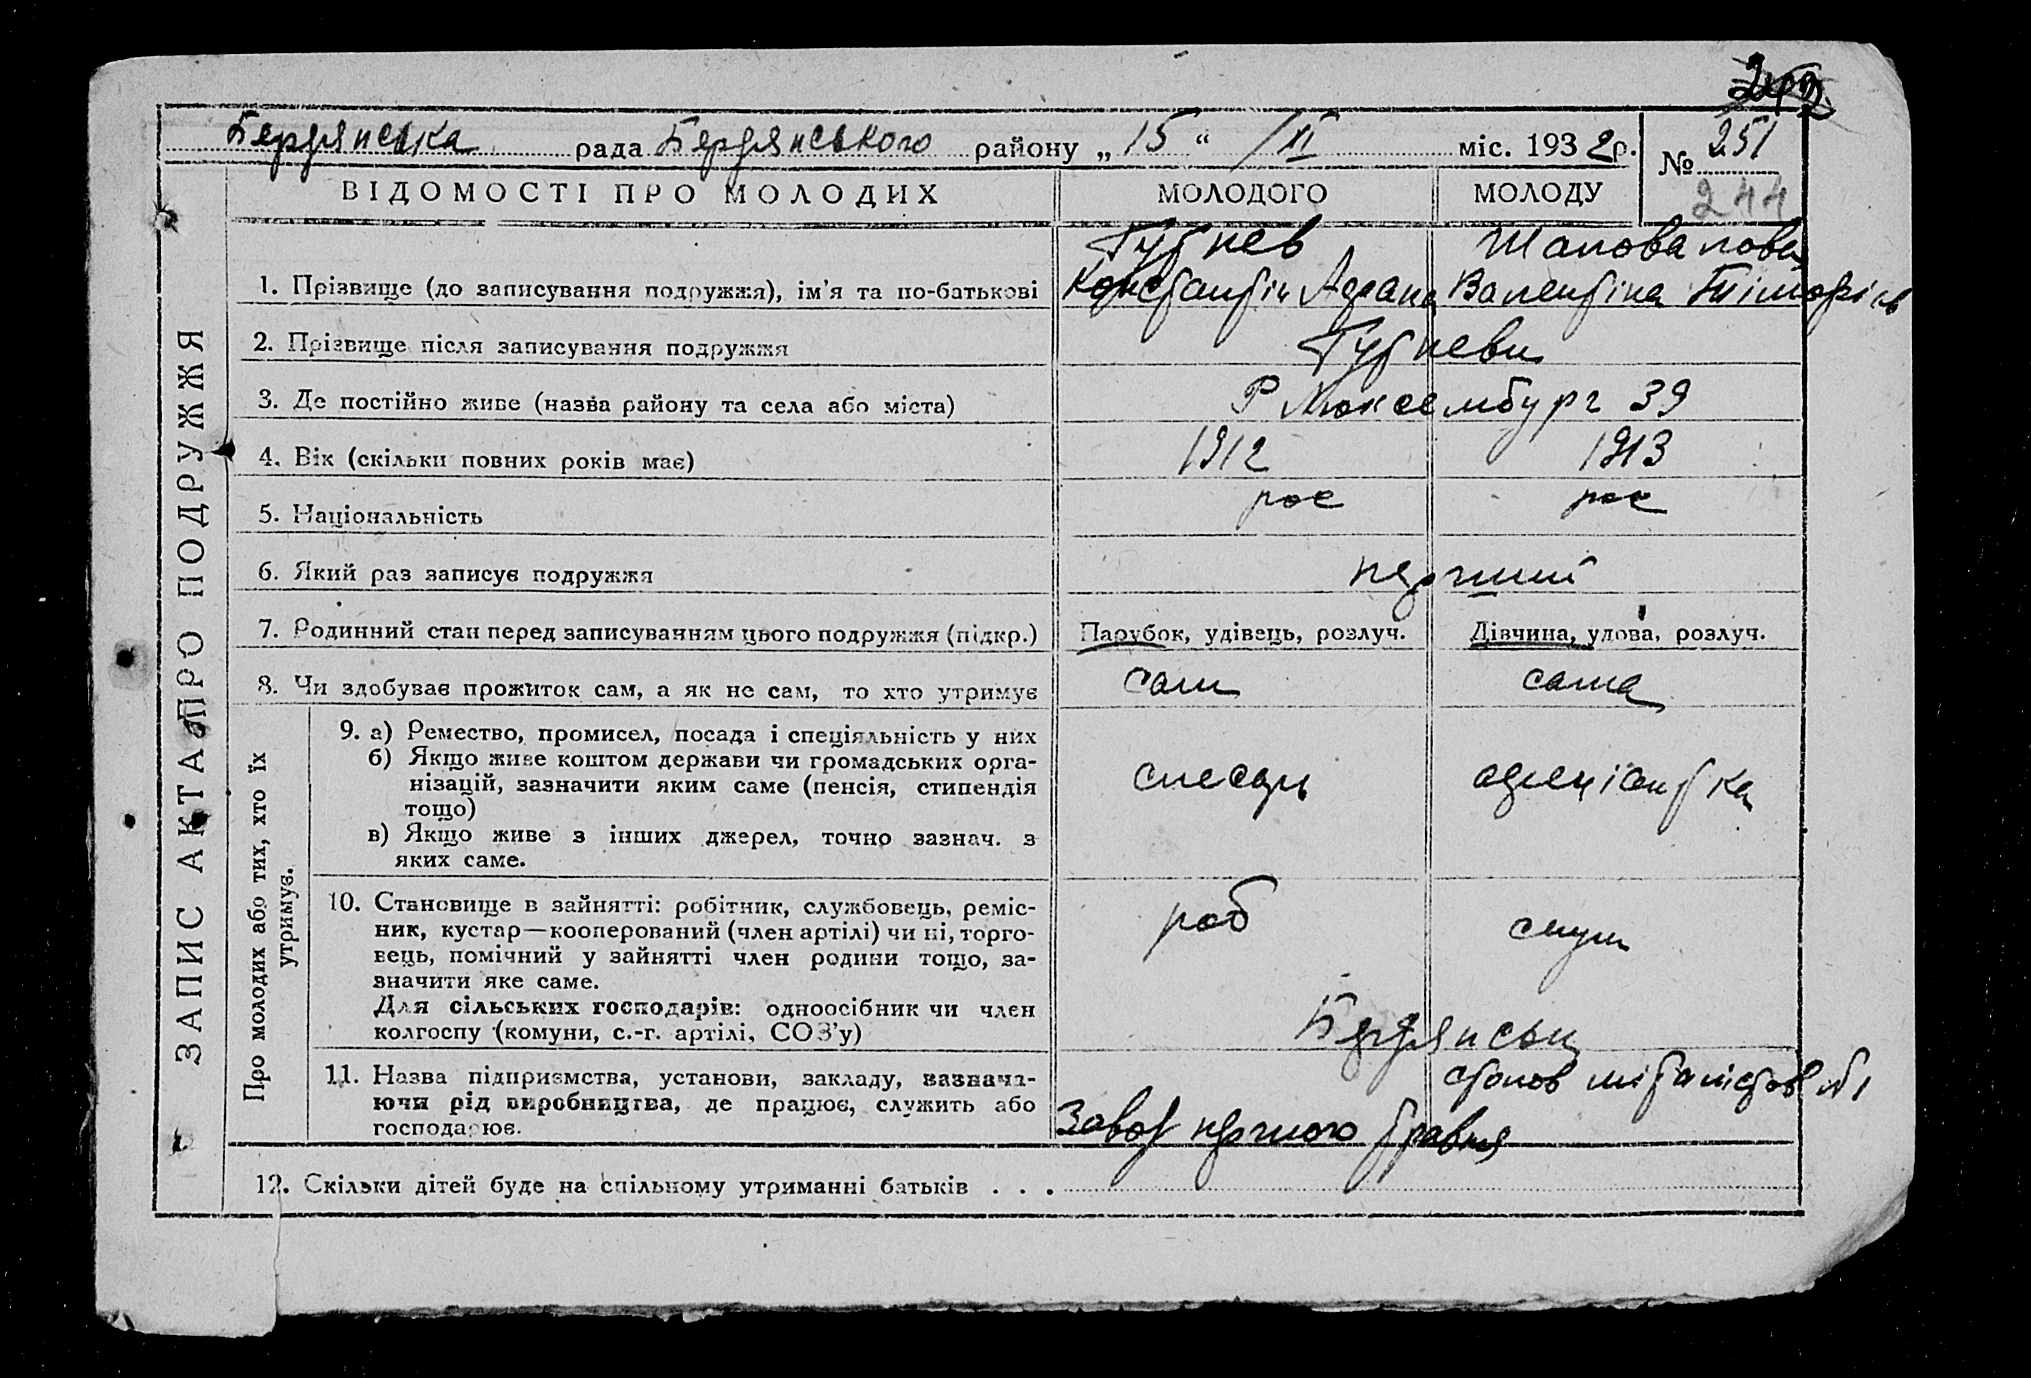 Бердянська рада Бердянського району „ 15 “ / ІІ міс. 1932 р.
№ 251
244
ЗАПИС АКТА ПРО ПОДРУЖЖЯ
ВІДОМОСТІ ПРО МОЛОДИХ МОЛОДОГО МОЛОДУ
Губнев Шаповалова
1. Прізвище (до записування подружжя), ім’я та по-батькові Константін Валентіна
2. Прізвище після записування подружжя Губневи
3. Де постійно живе (назва району та села або міста) Р Люксембург 39
4. Вік (скільки повних років має) 1912 1913
5. Національність рос рос
6. Який раз записує подружжя перший
7. Родинний стан перед записуванням цього подружжя (підкр.) Парубок, удівець, розлуч. Дівчина, удова, розлуч.
8. Чи здобуває прожиток сам, а як не сам, то хто утримує сам сама
Про молодих або тих, хто їх
утримує.
9. а) Ремество, промисел, посада і спеціяльність у них
б) Якщо живе коштом держави чи громадських орга-
нізацій, зазначити яким саме (пенсія, стипендія
тощо)
в) Якщо живе з інших джерел, точно зазнач. з
яких саме.
слесарь офіціантка
10. Становище в зайнятті: робітник, службовець, реміс-
ник, кустар—кооперований (член артілі) чи ні, торго-
вець, помічний у зайнятті член родини тощо, за-
значити яке саме.
Для сільських господарів: одноосібник чи член
колгоспу (комуни, с.-г. артілі, СОЗ’у)
роб служ
Бердянськ
11. Назва підприємства, установи, закладу, зазнача-
ючи рід виробництва, де працює, служить або
господарює.
Завод першого травня
столов металістов №1
12. Скільки дітей буде на спільному утриманні батьків . . .